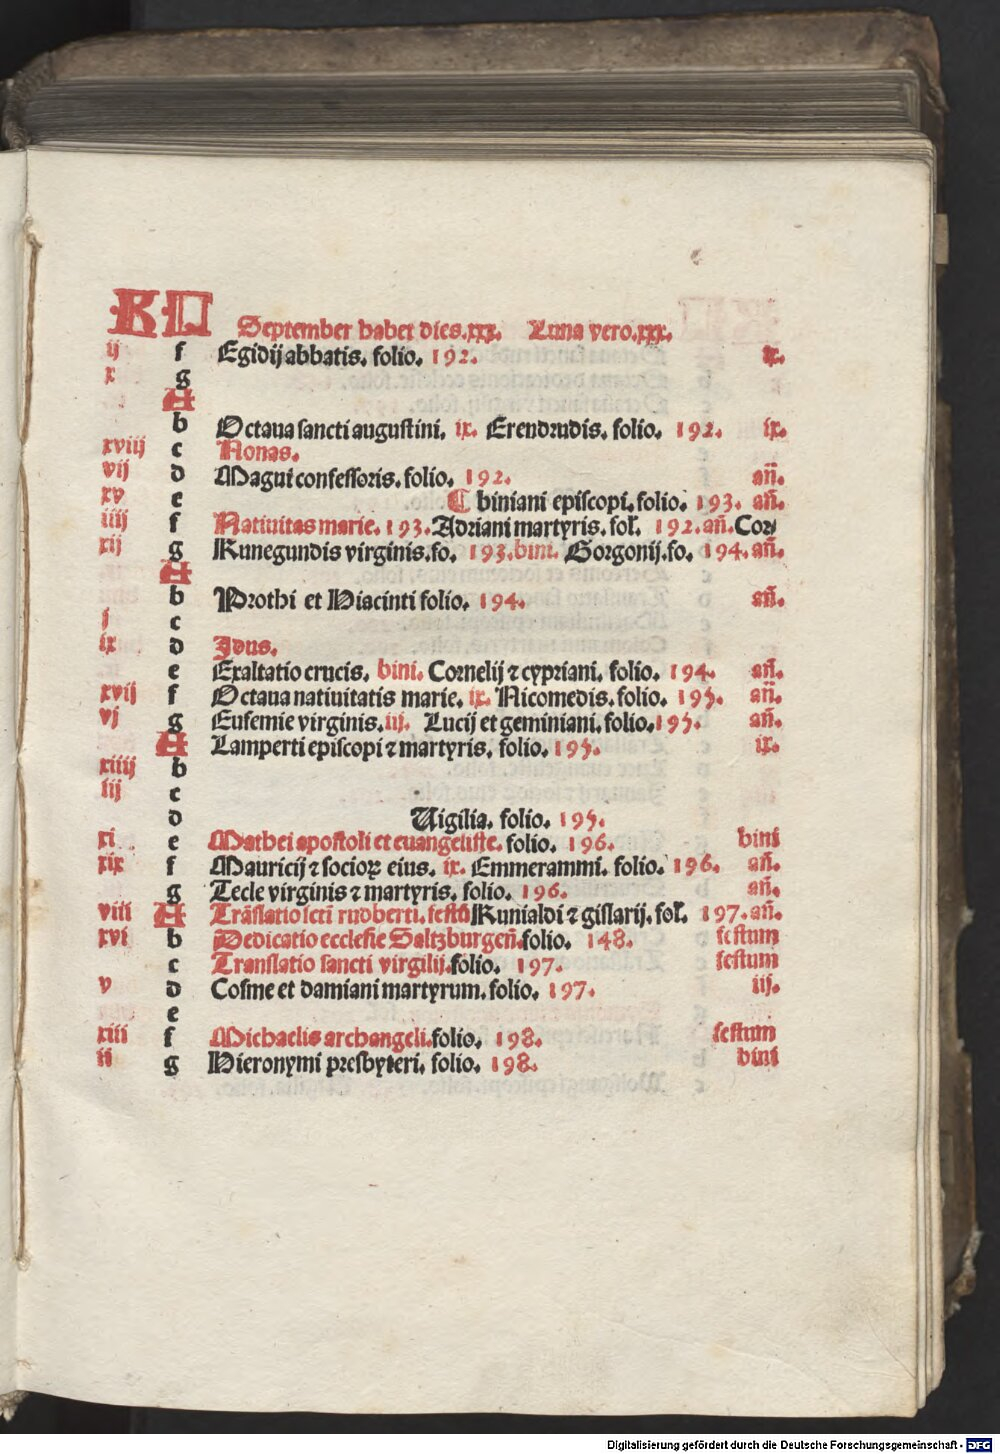 KL September habet dies.xxx. Luna vero.xxx.
ij f Egidij abbatis. folio. 192. ix.
x g
A
b Octaua sancti augustini. ix. Erendrudis. folio. 192. ix.
xviij c Nonas.
vij d Magni confessoris. folio. 192. añ.
xv e ¶ biniani episcopi. folio. 193. añ.
iiij f Natiuitas marie. 193. Adriani martyris. fol. 192. añ. Cor
xij g Kunegundis virginis. fo. 193. bini. Gorgonij. fo. 194. añ.
A
b Prothi et Hiacinti folio. 194. añ.
j c
ix d Idus.
e Exaltatio crucis. bini. Cornelij ⁊ cypriani. folio. 194. añ.
xvij f Octaua natiuitatis marie. ix. Nicomedis. folio. 195. añ.
vj g Eufemie virginis. iij. Lucij et geminiani. folio. 195. añ.
A Lamperti episcopi ⁊ martyris. folio. 195. ix.
xiiij b
iij c
d Uigilia. folio. 195.
xi e Mathei apostoli et euangeliste. folio. 196. bini
xix f Mauricij ⁊ socioꝝ eius. ix. Emmerammi. folio. 196. añ.
g Tecle virginis ⁊ martyris. folio. 196. añ.
viii A Trãslatio scti rudberti. festũ Kunialdi ⁊ gislarij. fol. 197. añ.
xvi b Dedicatio ecclesie Saltzburgeñ. folio. 148. festum
c Translatio sancti virgilij. folio. 197. festum
v d Cosme et damiani martyrum. folio. 197. iij.
e
xiii f Michaelis archangeli. folio. 198. festum
ii g Hieronymi presbyteri. folio. 198. bini
Digitalisierung gefördert durch die Deutsche Forschungsgemeinschaft - DFG